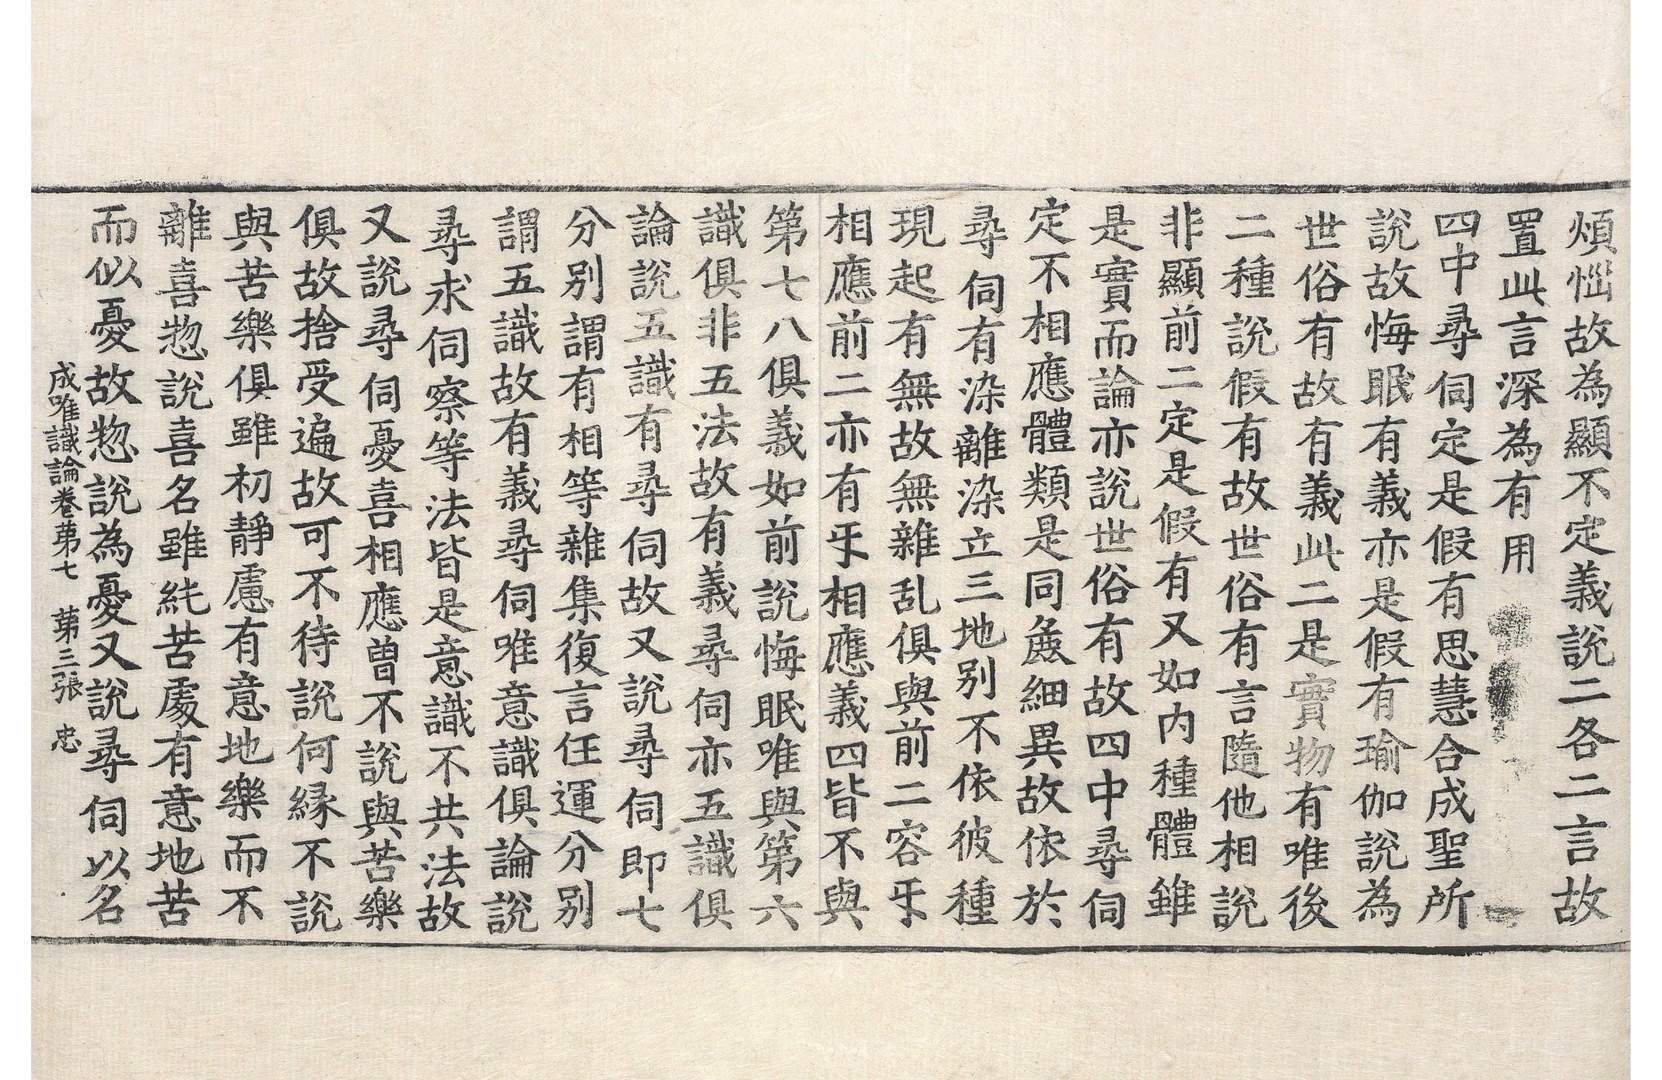 煩惱故為顯不定義說二各二言故
置此言深為有用
四中尋伺定是假有思慧合成聖所
說故悔眠有義亦是假有瑜伽說為
世俗有故有義此二是實物有唯後
二種說假有故世俗有言隨他相說
非顯前二定是假有又如內種體雖
是實而論亦說世俗有故四中尋伺
定不相應體類是同麁細異故依於
尋伺有染離染立三地別不依彼種
現起有無故無雜乱俱與前二容㸦
相應前二亦有㸦相應義四皆不與
第七八俱義如前說悔眠唯與第六
識俱非五法故有義尋伺亦五識俱
論說五識有尋伺故又說尋伺即七
分別謂有相等雜集復言任運分別
謂五識故有義尋伺唯意識俱論說
尋求伺察等法皆是意識不共法故
又說尋伺憂喜相應曾不說與苦樂
俱故捨受遍故可不待說何緣不說
與苦樂俱雖初靜慮有意地樂而不
離喜惣說喜名雖純苦處有意地苦
而似憂故惣說為憂又說尋伺以名
成唯識論卷苐七　苐三張　忠